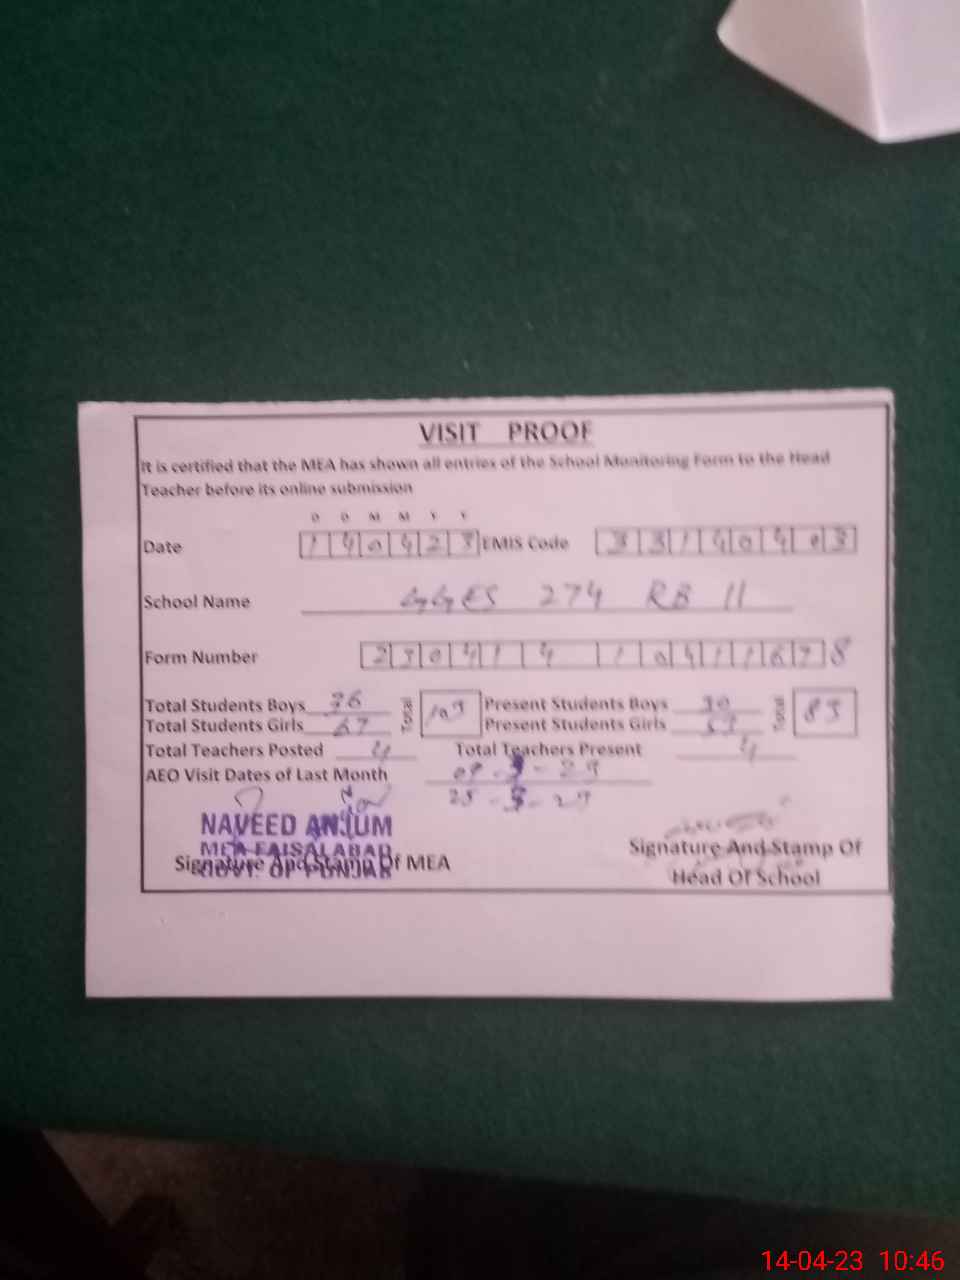 VISIT PROOF
It is certified that the MEA has shown all entries of the School Monitoring Form to the Head
Teacher before its online submission
D D M M Y Y
Date 140423 EMIS Code 33140403
School Name GGES 274 RB II
Form Number
Total Students Boys 36 Total 103 Present Students Boys 30 Total 83
Total Students Girls 67 Present Students Girls 53
Total Teachers Posted 4 Total Teachers Present 4
AEO Visit Dates of Last Month
NAVEED ANJUM
MEA FAISALABAD
GOVT. OF PUNJAB
Signature And Stamp Of MEA
Signature And Stamp Of
Head Of School
14-04-23 10:46